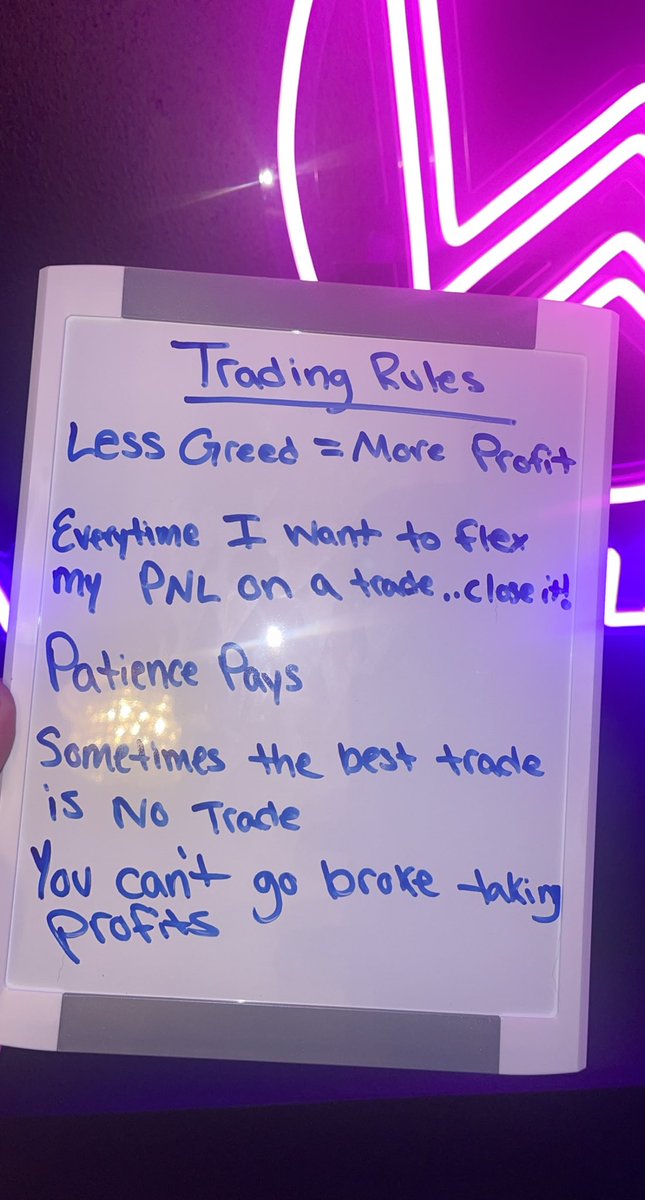 Trading Rules
Less Greed = More Profit
Everytime I want to flex
my PNL on a trade..close it!
Patience Pays
Sometimes the best trade
is No Trade
You can't go broke taking
profits